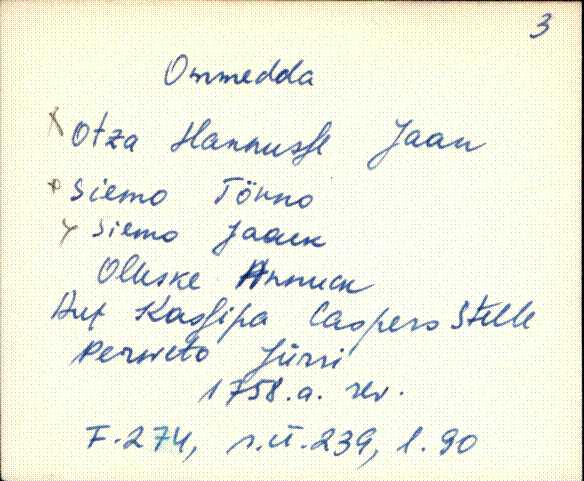 3
Ommedda
x Otza Hannusse Jaan
x Siemo Tönno
x Siemo Jaack
Olluske Annuck
Auf Kassipa Caspers Stelle
Perweto Jürri
1758.a. rev.
F.274, s.ü.239, l.90